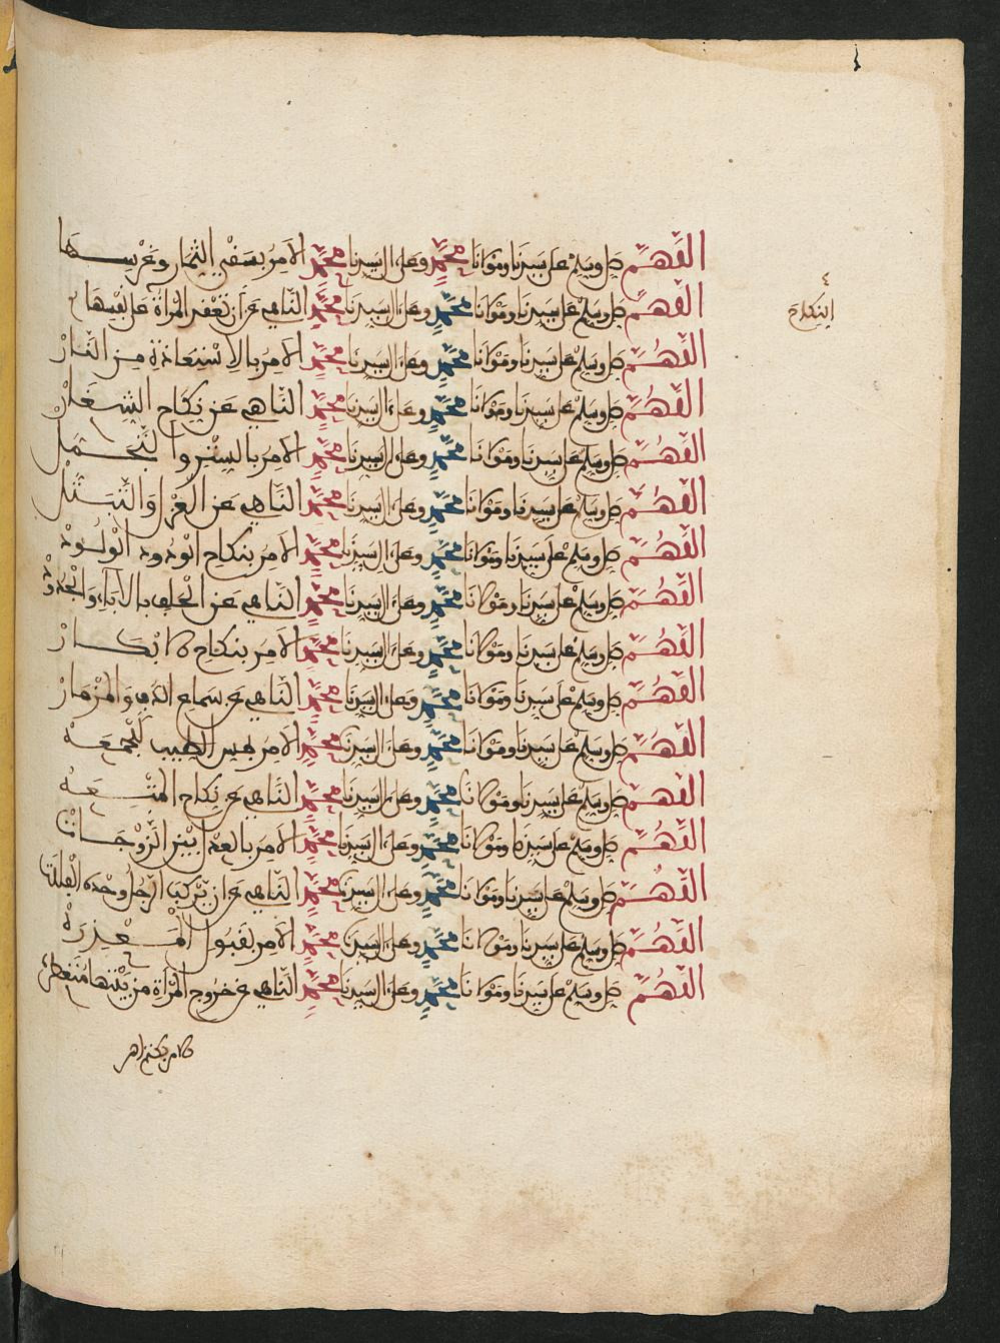 اللهم صل وسلم على سيدنا ومولانا محمد وعلى ال سيدنا محمد الامر بسقي الثمار وغرسها
اللهم صل وسلم على سيدنا ومولانا محمد وعلى ال سيدنا محمد الناهي عن ان تعقد المرأة على نفسها
النكاح
اللهم صل وسلم على سيدنا ومولانا محمد وعلى ال سيدنا محمد الامر بالاستعاذة من النار
اللهم صل وسلم على سيدنا ومولانا محمد وعلى ال سيدنا محمد الناهي عن نكاح الشغار
اللهم صل وسلم على سيدنا ومولانا محمد وعلى ال سيدنا محمد الامر بالستر والتجمل
اللهم صل وسلم على سيدنا ومولانا محمد وعلى ال سيدنا محمد الناهي عن العزل والتبتل
اللهم صل وسلم على سيدنا ومولانا محمد وعلى ال سيدنا محمد الامر بنكاح الودود الولود
اللهم صل وسلم على سيدنا ومولانا محمد وعلى ال سيدنا محمد الناهي عن الحلف بالاباء والجدود
اللهم صل وسلم على سيدنا ومولانا محمد وعلى ال سيدنا محمد الامر بنكاح الابكار
اللهم صل وسلم على سيدنا ومولانا محمد وعلى ال سيدنا محمد الناهي عن سماع الدف والمزمار
اللهم صل وسلم على سيدنا ومولانا محمد وعلى ال سيدنا محمد الامر بمس الطيب للجمعة
اللهم صل وسلم على سيدنا ومولانا محمد وعلى ال سيدنا محمد الناهي عن نكاح المتعة
اللهم صل وسلم على سيدنا ومولانا محمد وعلى ال سيدنا محمد الامر بالعدل بين الزوجات
اللهم صل وسلم على سيدنا ومولانا محمد وعلى ال سيدنا محمد الناهي عن ان يركب الرجل وحده
اللهم صل وسلم على سيدنا ومولانا محمد وعلى ال سيدنا محمد الامر بقبول المعذرة
اللهم صل وسلم على سيدنا ومولانا محمد وعلى ال سيدنا محمد الناهي عن خروج المرأة من بيتها متعطرة